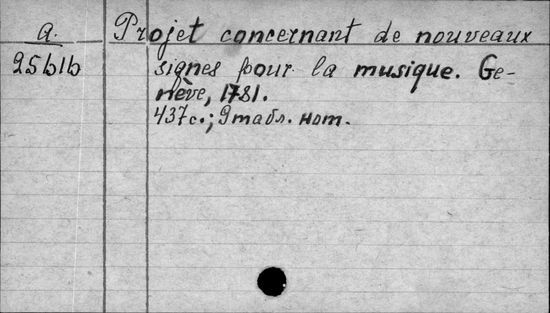 A. Projet concernant de nouveaux
25616 signes pour la musique. Ge-
nève, 1781.
437с.; 9 табл. нот.